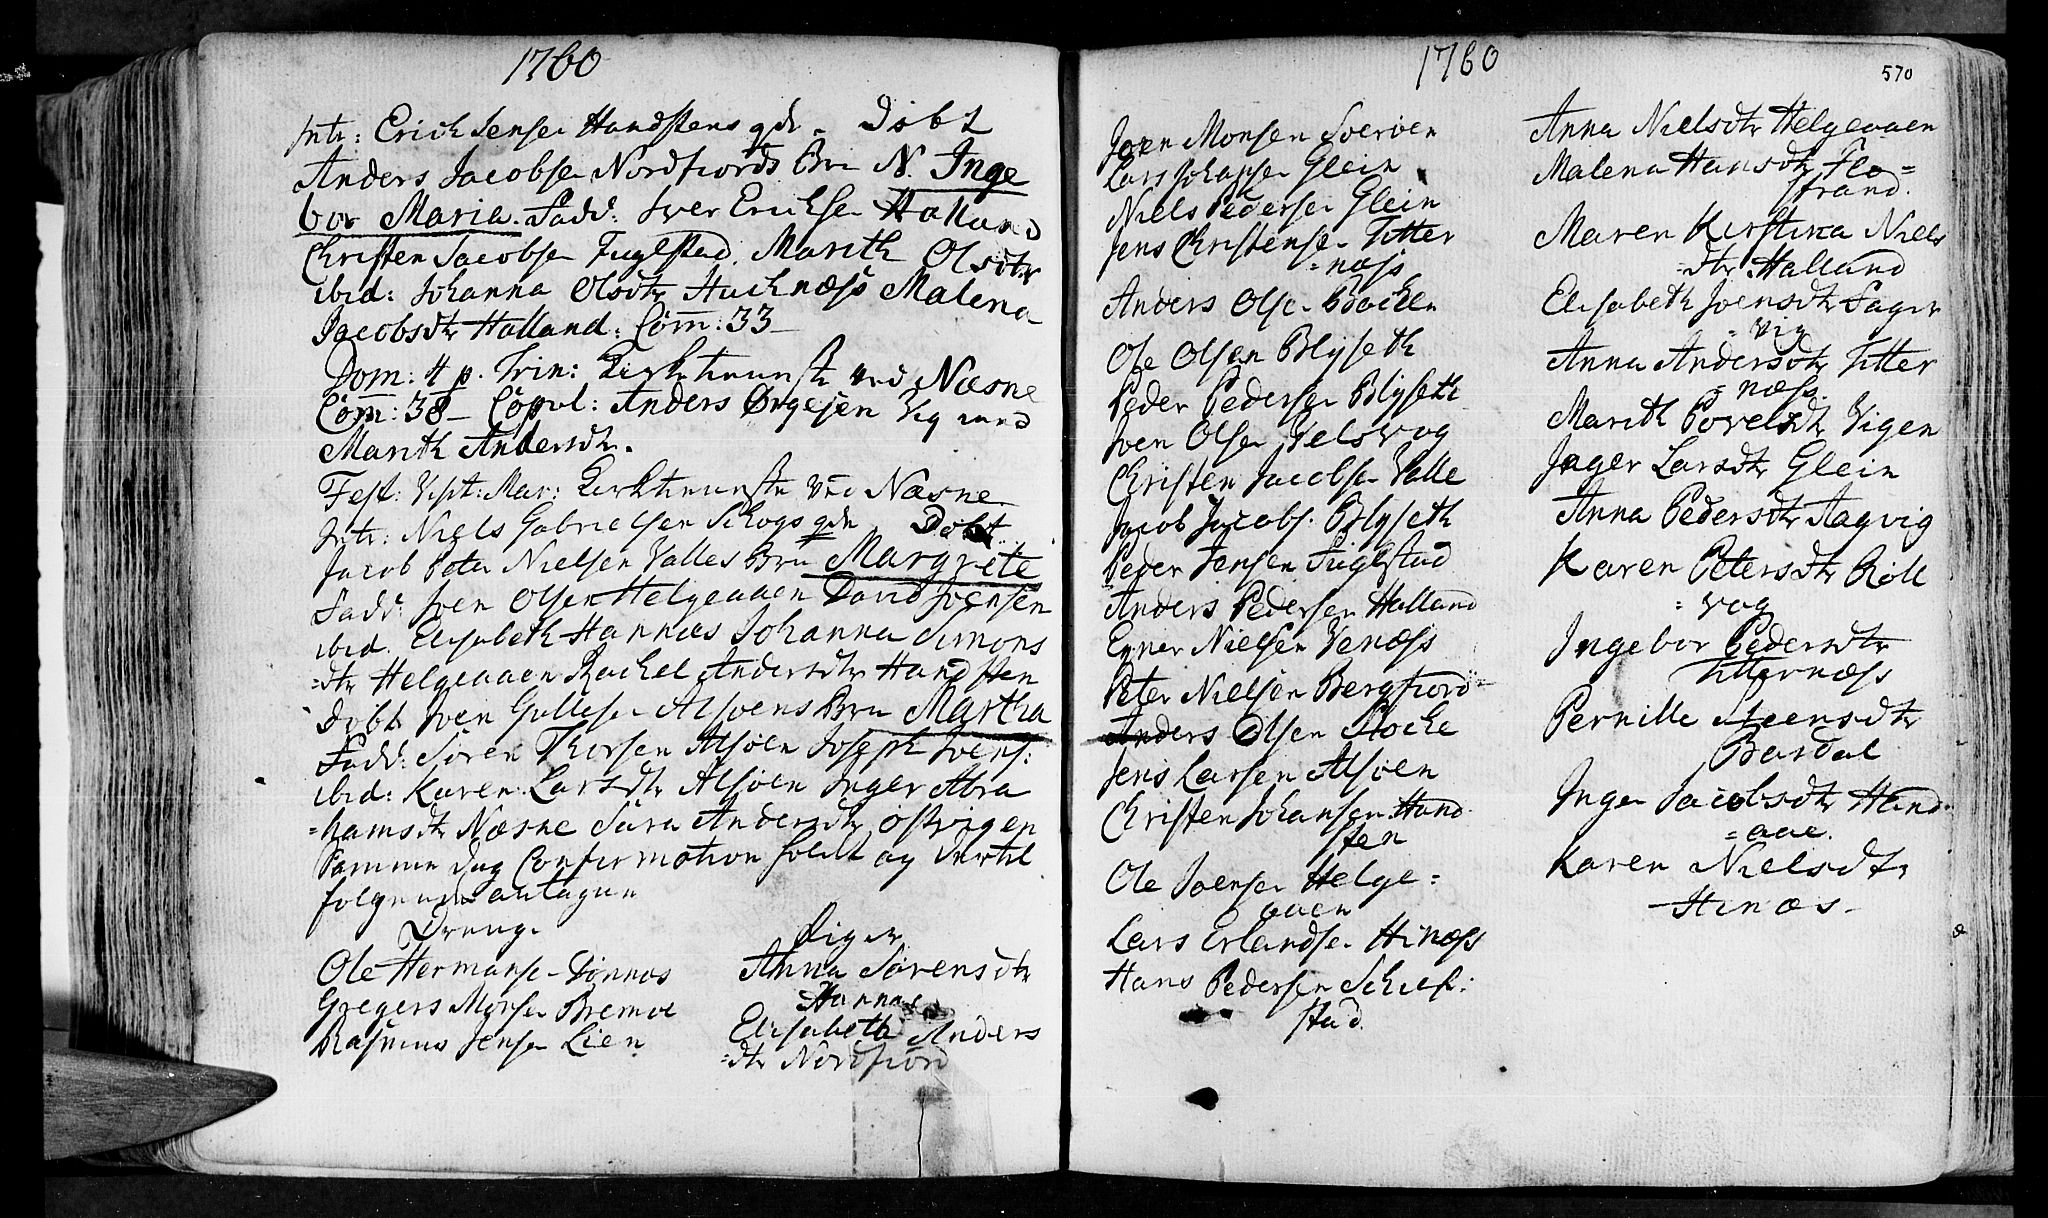 1760
Intr: Erich Jensen Handstens qde. Döbt
Anders Jacobsen Nordfiords Brn N. Inge
bor Maria. Fadd: Iver Erichsen Halland
Christen Jacobsen Fuglstad. Marith Olsdtr
ibid: Johanna Olsdtr Huchnæss Malena
Jacobsdtr Halland. Com̄: 33
Dom: 4 p. Trin: Kirktieneste ved Næsne
Com̄: 38 – Copul: Anders Ørgesen Vig med
Marith Andersdtr.
Fest: Visit: Mar: Kirktieneste ved Næsne
Intr: Niels Gabrielsen Schogs qde Döbt
Jacob Peter Nielsen Valles Brn Margrete
Fadd: Joen Olsen Helgeaaen David Joensen
ibid. Elisabeth Hannæs Johanna Simons
=dtr Helgeaaen Rachel Andersdtr Handsten
Döbt Joen Gullesen Alsöens Brn Martha
Fadd: Sören Thorsen Alsöen Joseph Joens:
ibid: Karen Larsdtr Alsöen Inger Abra
=hamsdtr Næsne Sara Andersdtr östvigen
Samme dag Confirmation holdt og dertil
følgende antagne
Drenge
Ole Hermanse Dönnæs
Gregers Morsen Bremoe
Rasmus Jensen Lien
Piger
Anna Sörensdtr
Hannæs
Elisabeth Anders
=dtr Nordfiord
1760
570
Joen Monsen Soerven
Lars Glein
Niels Pedersen Glein
Jens Christensen Titter
=næss
Anders Olsen Bachen
Ole Olsen Blyseth
Peder Pedersen Blyseth
Joen Olsen Velsvog
Christen Jacobsen Valle
Jacob Jacobs. Blyseth
Peder Jensen Fuglstad
Anders Pedersen Halland
Enner Nielsen Venæss
Peter Nielsen Bergfiord
Anders Olsen Stocke
Jens Larsen Alsöen
Christen Johansen Hand
sten
Ole Joensen Helge=
aaen
Lars Erlandsen Hinæss
Hans Pedersen Schef:
stad.
Anna Nielsdtr Helgeaaen
Malena Hansdtr Flo=
strand.
Maren Kirstina Niels
=dtr Halland
Elisabeth Joensdtr Sager
=vig
Anna Andersdtr Titter
=næss.
Marith Povelsdtr Vigen
Inger Larsdtr Glein
Anna Pedersdtr Aagvig
Karen Petersdtr Röll
=vog
Ingebor Pedersdtr
Titternæss
Pernille Steensdtr
Bardal
Inger Jacobsdtr Hand
=aae.
Karen Nielsdtr
Hinæs